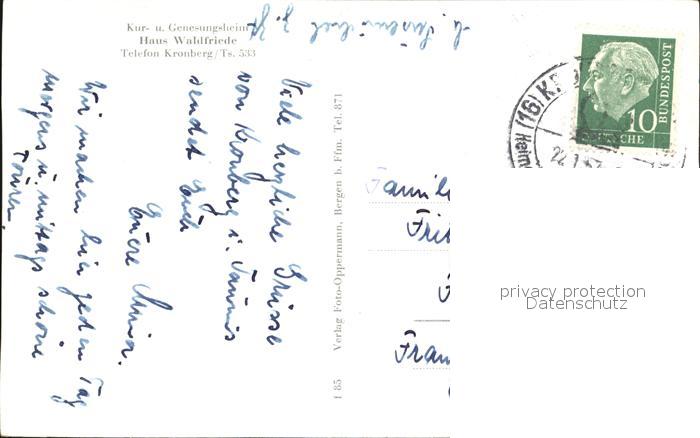 Kur- u. Genesungsheim
Haus Waldfriede
Telefon Kronberg/Ts. 533
Viele herzliche Grüsse
von Kronberg i. Taunus
sendet Euch
Euere
Wir machen hier jeden Tag
morgens u. mittags schöne
Touren.
1 85 Verlag Foto-Oppermann, Bergen b. Ffm. Tel. 871
(16) K
22.
10
DEUTSCHE
BUNDESPOST
Famil
Fri
F
Fran
privacy protection
Datenschutz